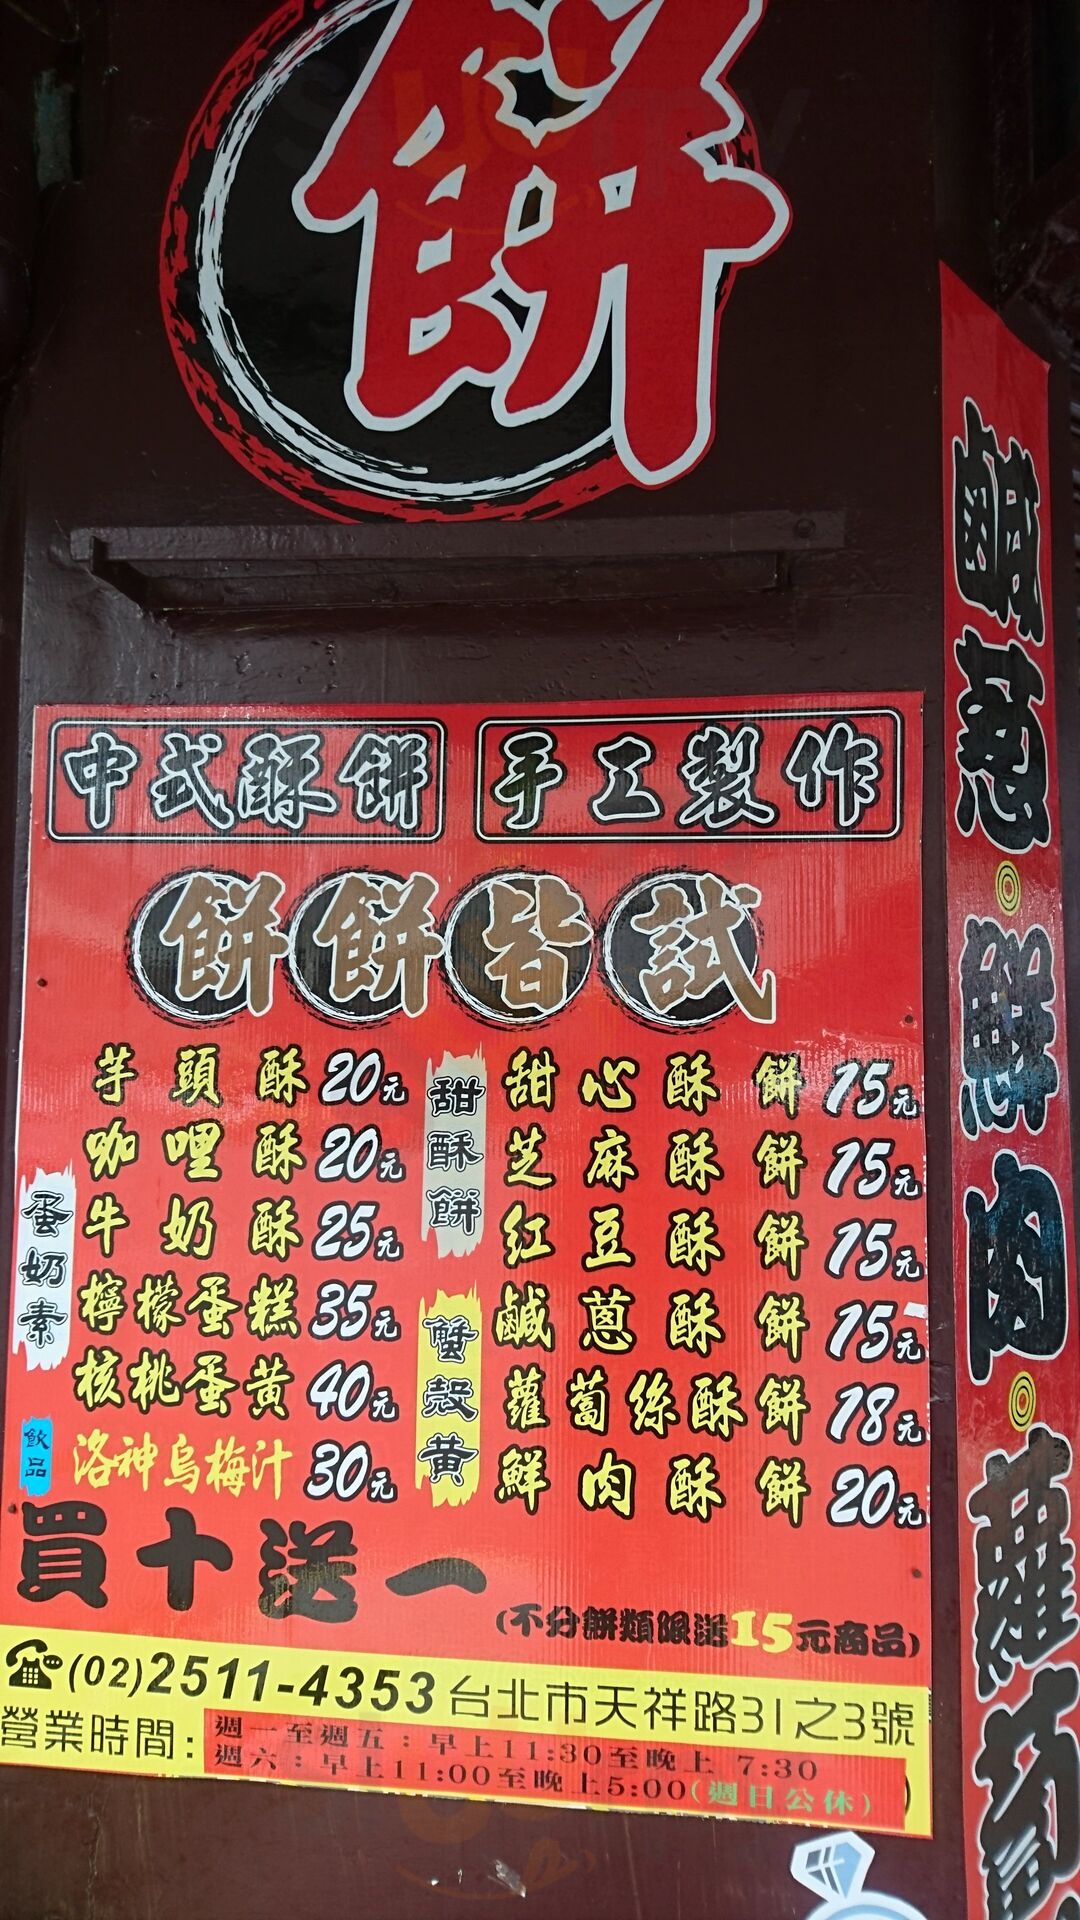 餅
中式酥餅 手工製作
餅餅皆試
芋頭酥20元
咖哩酥20元
牛奶酥25元
檸檬蛋糕35元
核桃蛋黃40元
蛋奶素
飲品
洛神烏梅汁30元
甜酥餅
甜心酥餅15元
芝麻酥餅15元
紅豆酥餅15元
蟹殼黃
鹹蔥酥餅15元
蘿蔔絲酥餅18元
鮮肉酥餅20元
買十送一
(不分餅類限送15元商品)
(02)2511-4353台北市天祥路31之3號
營業時間:
週一至週五:早上11:30至晚上 7:30
週六:早上11:00至晚上5:00(週日公休)
鹹蔥·鮮肉·蘿蔔